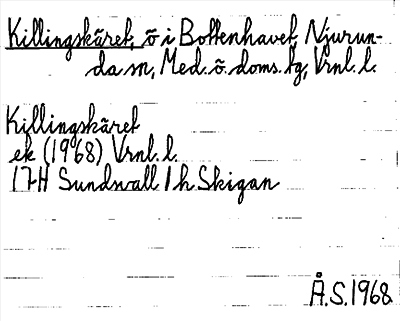 Killingskäret, ö i Bottenhavet, Njurun-
da sn, Med. ö. doms. tg, Vrnl. l.
Killingskäret
ek (1968) Vrnl. l.
17H Sundsvall 1 h Skigan
Å.S. 1968